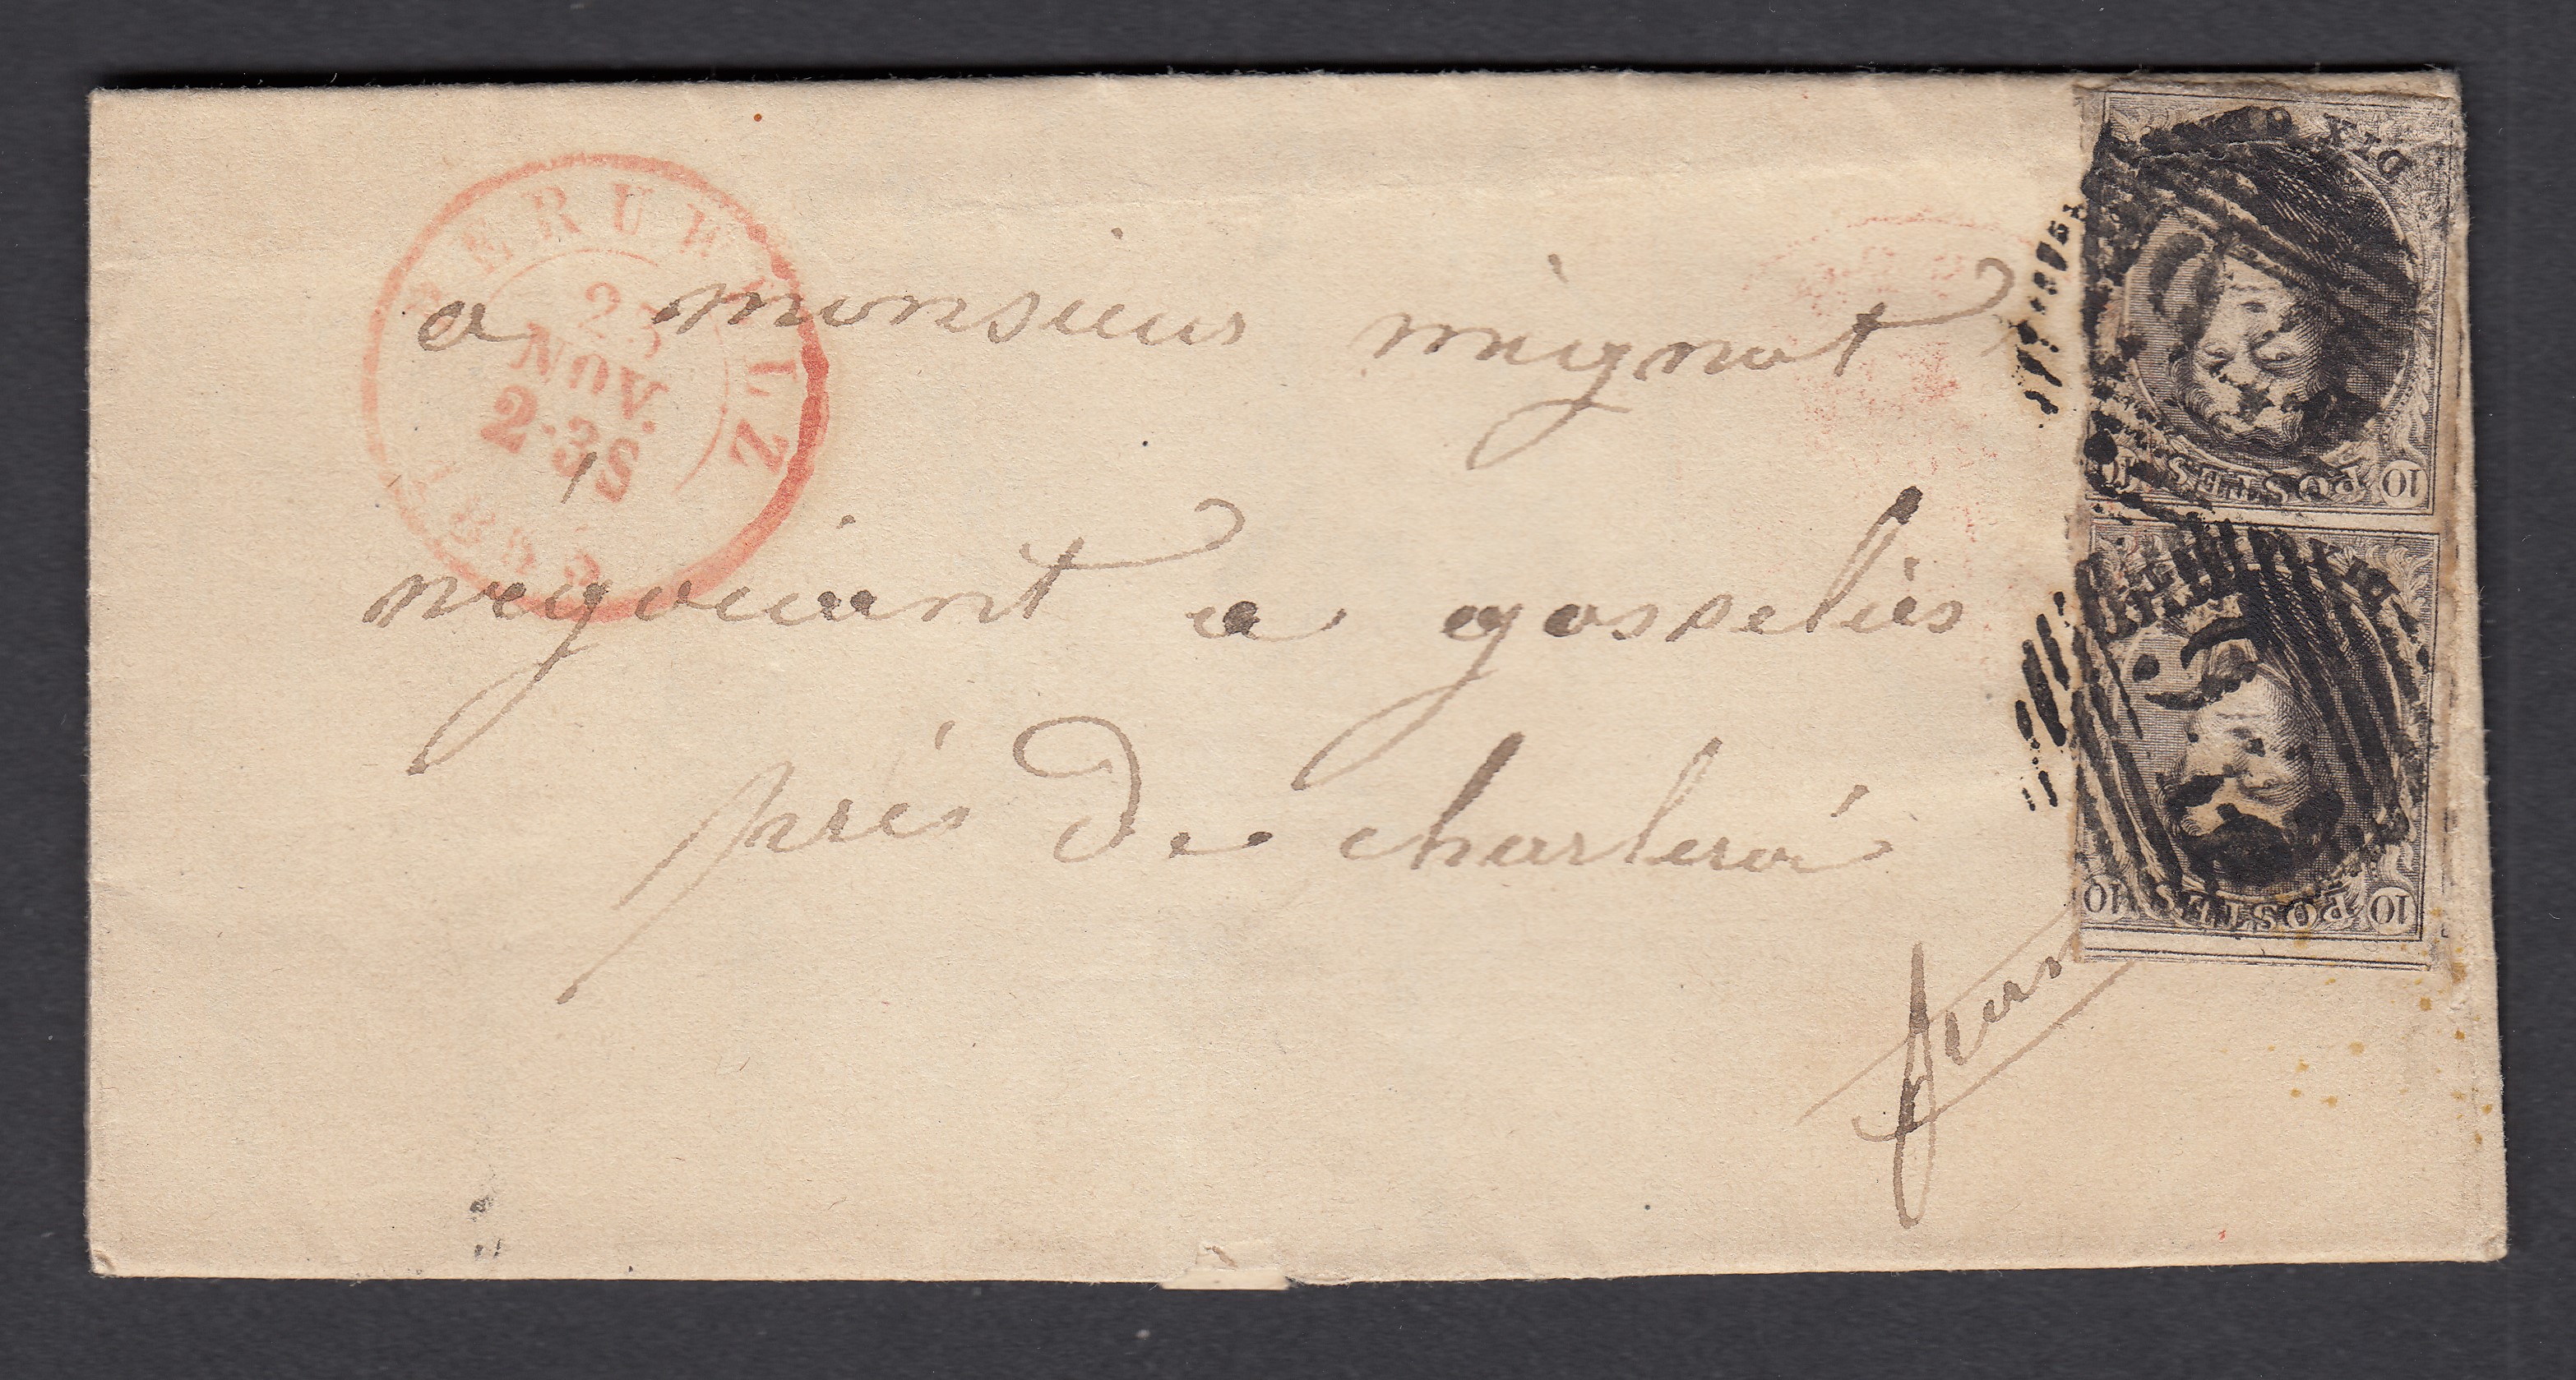 PERUWELZ
23
NOV.
2·3S
a monsieur mignot
negociant a gosselies
près de charleroi
DIX
10 POSTES 10
10 POSTES 10